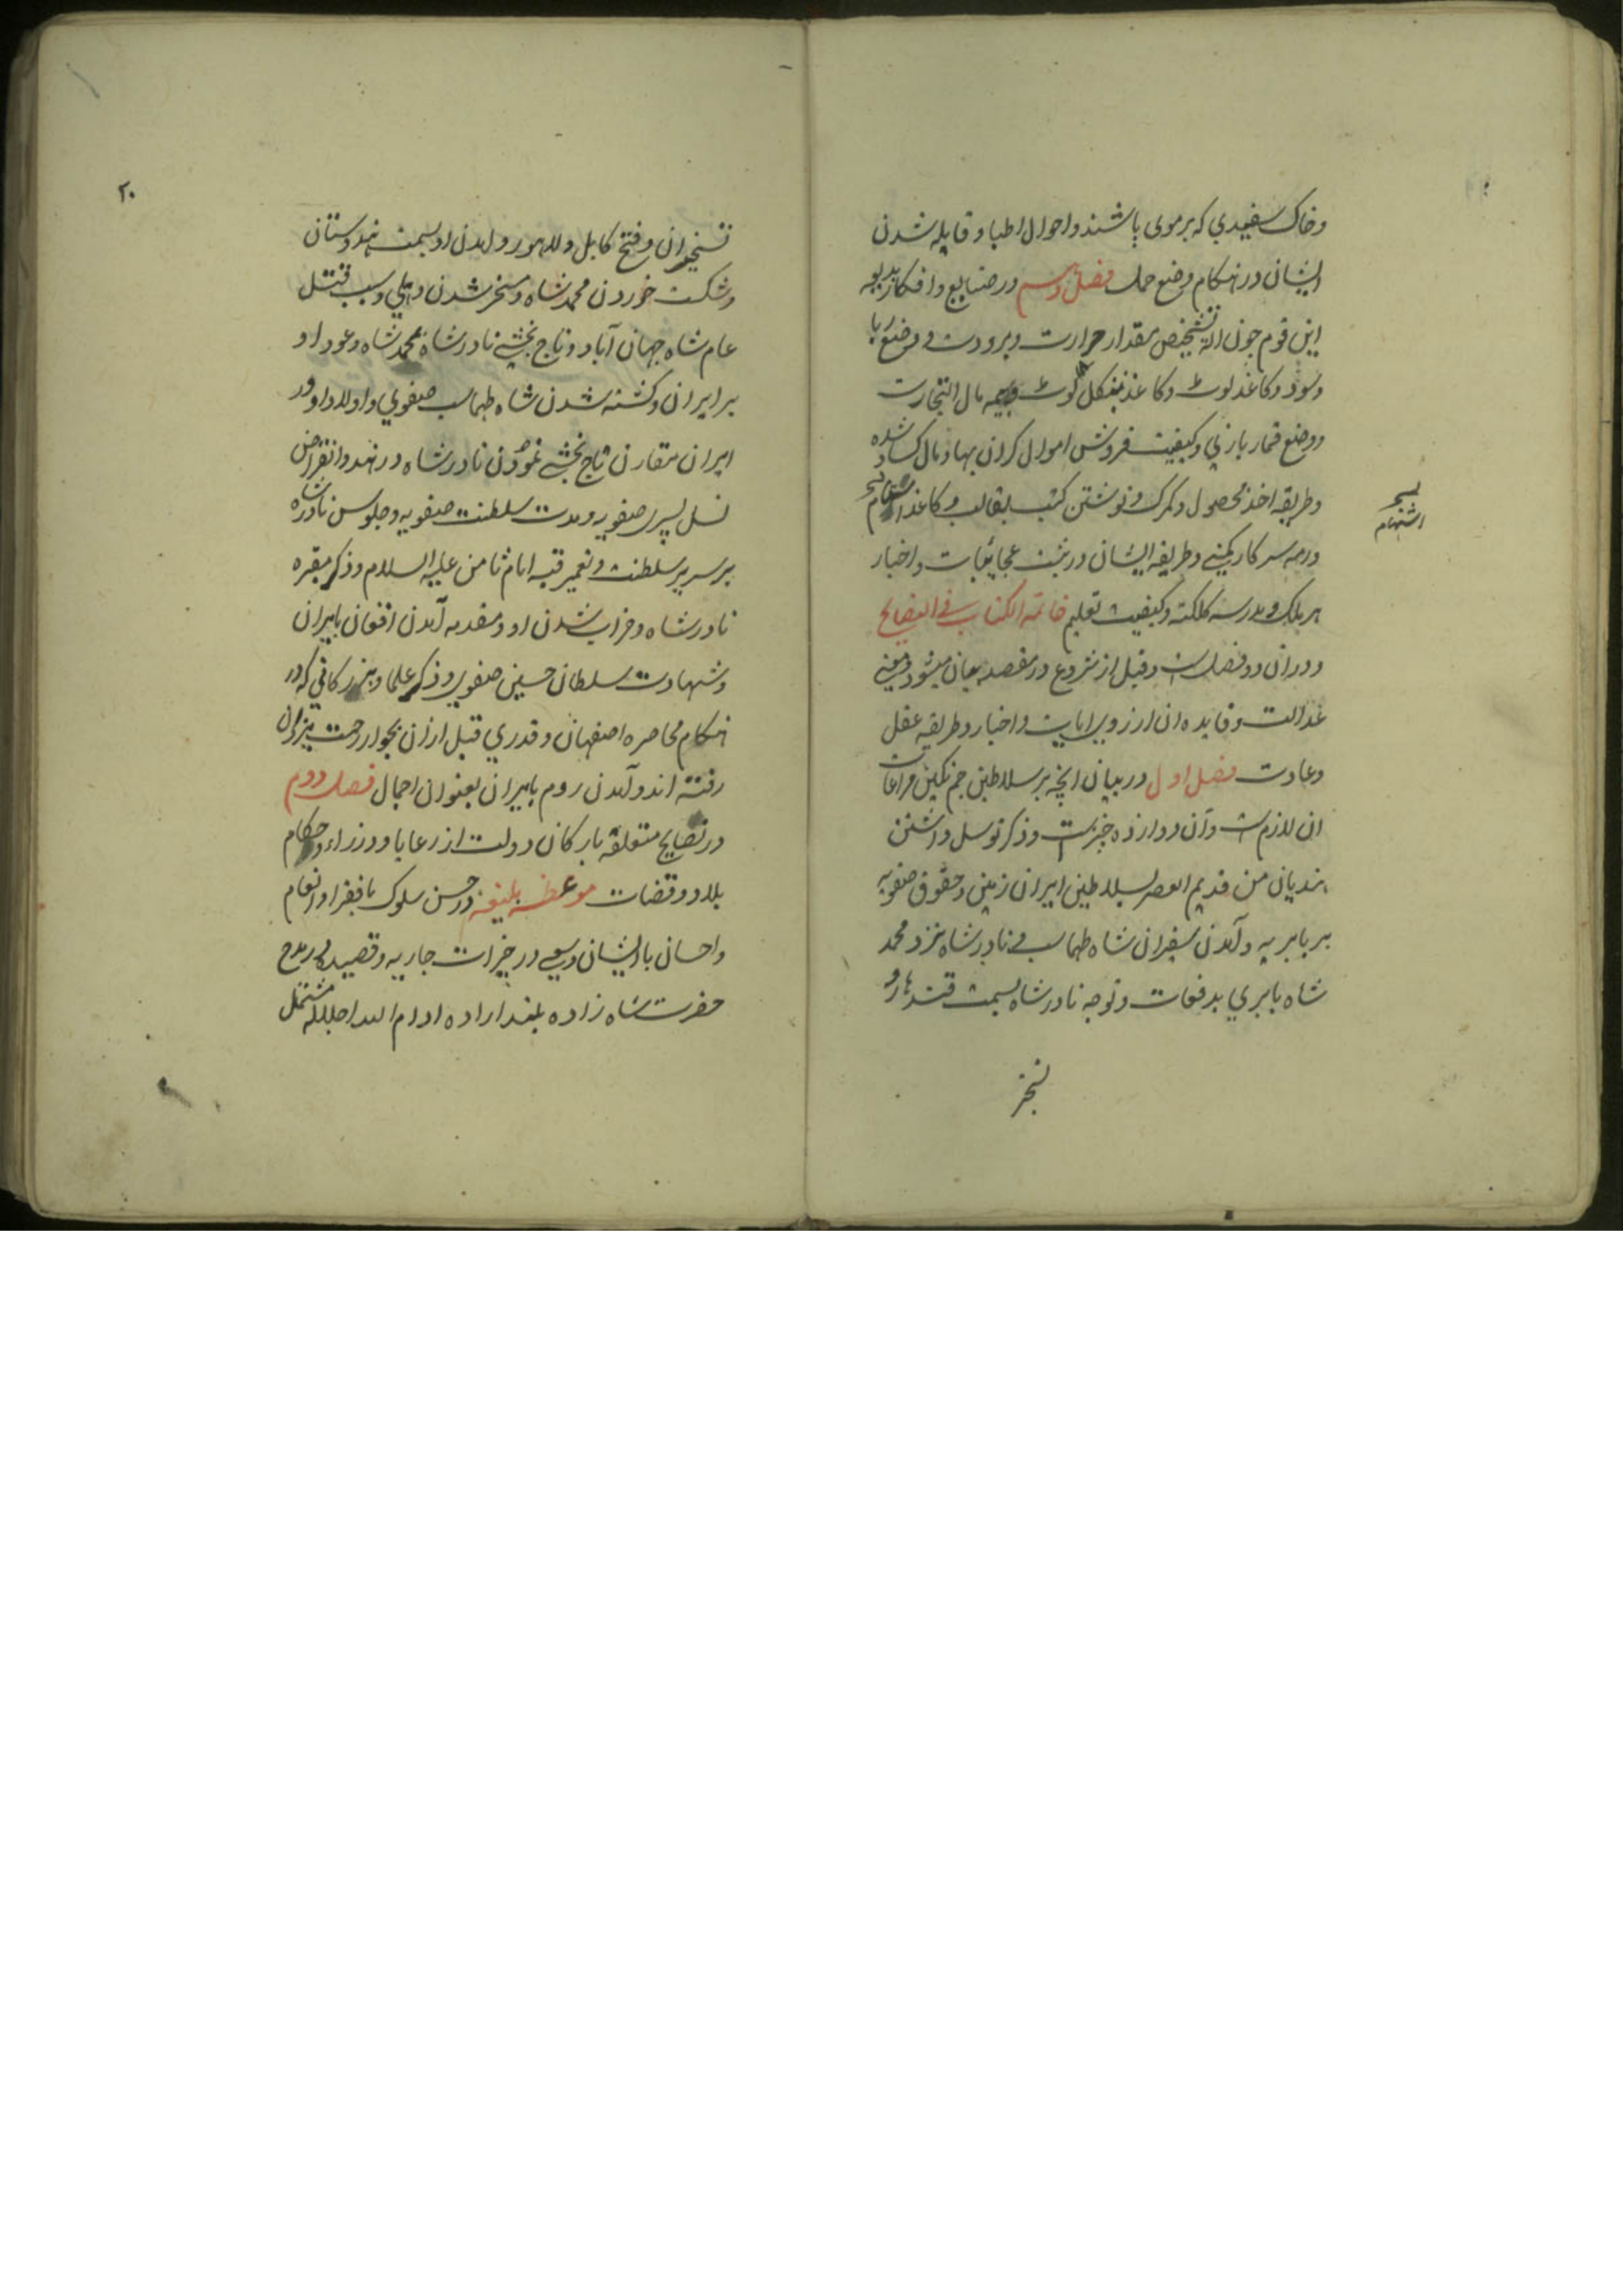 وخاک سفیدي که برموی پاشند واحوال اطبا و قابله شدن
ایشان در هنکام وضع حمل فصل سیم در صنایع وافکار بدیعه
این قوم چون آلة تشخیص مقدار حرارت و برودت و وضع ربا
وسود و کاغذ لوٹ و کاغذ بنکل لوٹ وبیمه مال التجارت
ووضع قمار بازي وکیفیت فروش اموال کران بها ومال کساد شده
وطریقه اخذ محصول وکمرک ونوشتن کتب بقالب وکاغذ اشتهام
ودرجه سرکار کمپنی وطریقه ایشان در ثبت عجایبات واخبار
هر ملک ومدرسه کلکته وکیفیت تعلیم خاتمة الکتاب في النصایح
ودران دو فصلست وقبل از شروع در مقصد بیان میشود معني
عدالت وفایده آن از روی آیات واخبار وطریقه عقل
وعادت فصل اول در بیان آنچه بر سلاطین جم نکین مراعات
آن لازمست وآن دوازده چیزست وذکر توسل داشتن
هندیان من قدیم العصر بسلاطین ایران زمین وحقوق صفویه
بر بابریه وآمدن سفیران شاه طهماسب ونادرشاه نزد محمد
شاه بابري بدفعات وتوجه نادرشاه بسمت قندهار و
تسخیر
اشتهام
۲۰
تسخیر آن وفتح کابل ولاهور وآمدن او بسمت هندوستان
وشکست خوردن محمدشاه ومسخر شدن دهلي وسبب قتل
عام شاه جهان آباد وتاج بخشي نادرشاه محمدشاه وعود او
بر ایران وکشته شدن شاه طهماسب صفوي واولاد او در
ایران مقارن تاج بخشي نمودن نادرشاه در هند وانقراض
نسل پسري صفویه ومدت سلطنت صفویه وجلوس نادرشاه
بر سریر سلطنت وتعمیر قبه امام ثامن علیه السلام وذکر مقبره
نادرشاه وخراب شدن او ومقدمه آمدن افغان بایران
وشهادت سلطان حسین صفوي وذکر علما وبزرکاني که در
هنکام محاصره اصفهان وقدري قبل ازان بجوار رحمت یزدان
رفته اند وآمدن روم بایران بعنوان اجمال فصل دوم
در نصایح متعلقه بارکان دولت از رعایا ووزراء وحکام
بلاد وقضات موعظه بلیغه در حسن سلوک با فقرا وانعام
واحسان با ایشان وسعي در خیرات جاریه وقصیده در مدح
حضرت شاه زاده بلند اراده ادام الله اجلاله مشتمل